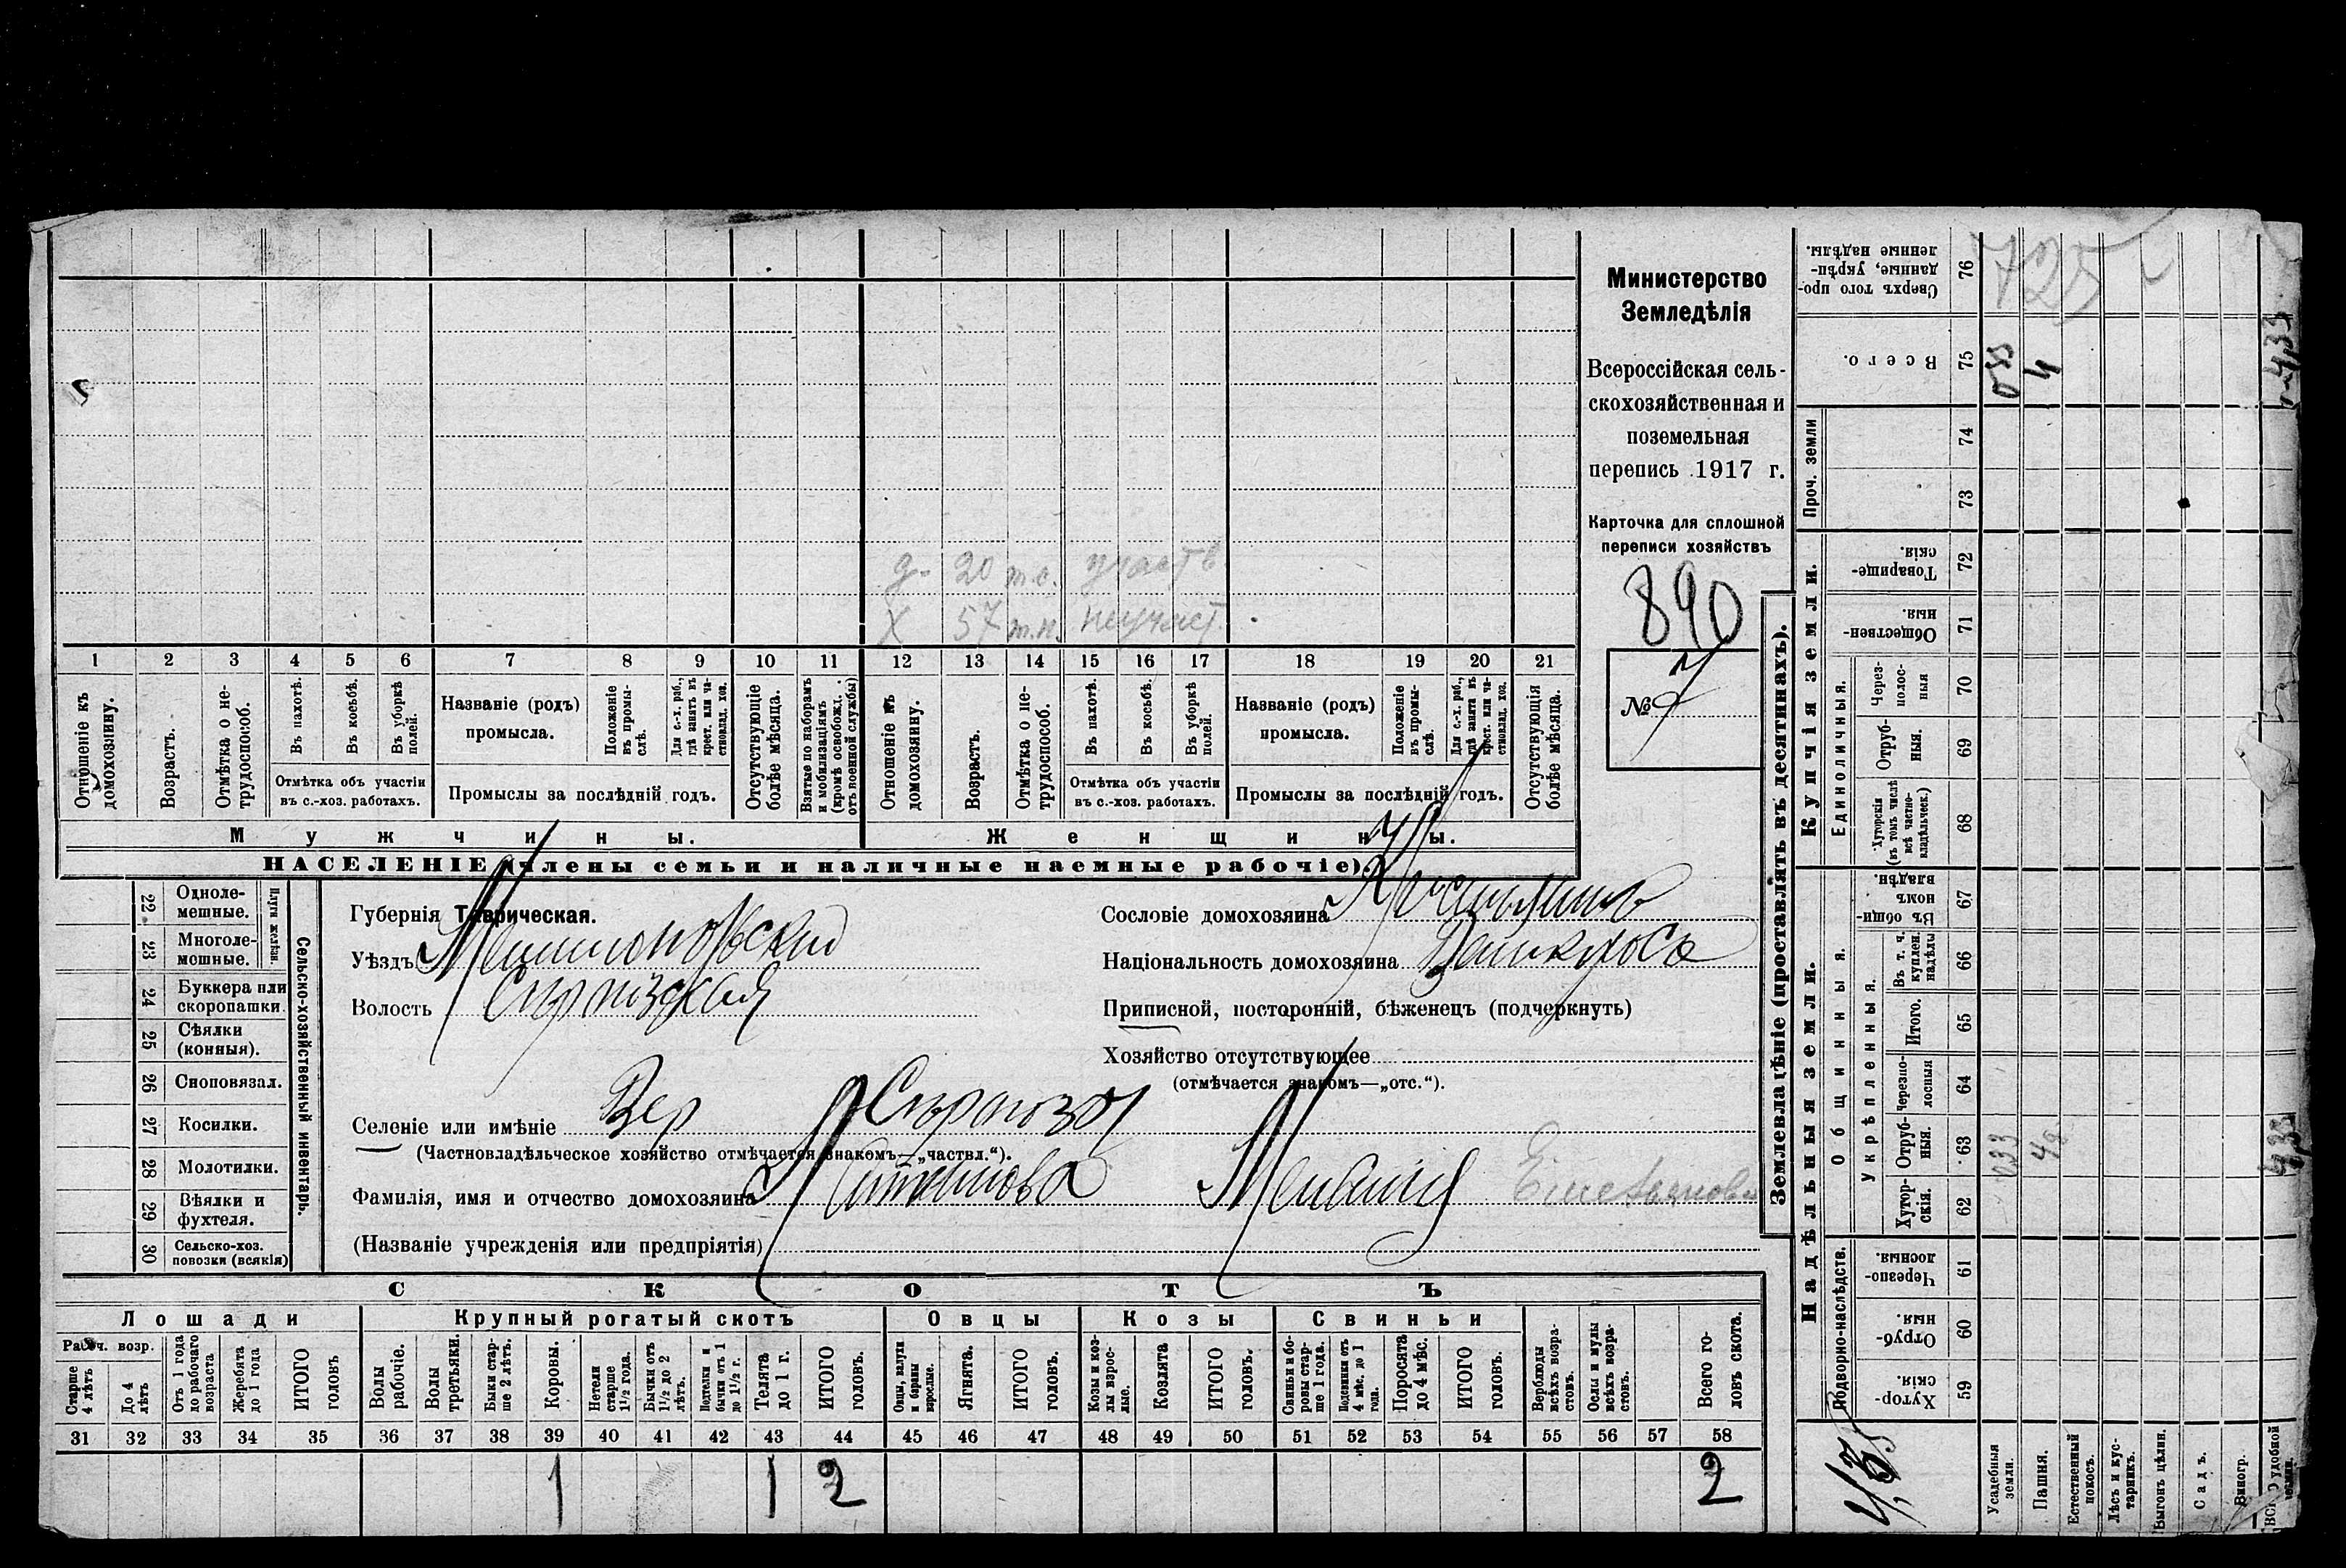 Министерство
Земледѣлія
Всероссійская сель-
скохозяйственная и
поземельная
перепись 1917 г.
Карточка для сплошной
переписи хозяйствъ
890
№ 7
д. 20 т.с. участв
х 57 т.н. неучаст.
1 2 3 4 5 6 7 8 9 10 11 12 13 14 15 16 17 18 19 20 21
Отношеніе къ домохозяину.
Возрастъ.
Отмѣтка о не-трудоспособ.
Въ пахотѣ.
Въ косьбѣ.
Въ уборкѣ полей.
Отмѣтка объ участіи
въ с.-хоз. работахъ.
Названіе (родъ)
промысла.
Положеніе въ промы-слѣ.
Для с.-х. раб., гдѣ занятъ въ крест. или ча-стновлад. хоз.
Промыслы за послѣдній годъ.
Отсутствующіе болѣе мѣсяца.
Взятые по наборамъ и мобилизаціямъ (кромѣ освобожд. отъ военной службы)
Отношеніе къ домохозяину.
Возрастъ.
Отмѣтка о не-трудоспособ.
Въ пахотѣ.
Въ косьбѣ.
Въ уборкѣ полей.
Отмѣтка объ участіи
въ с.-хоз. работахъ.
Названіе (родъ)
промысла.
Положеніе въ промы-слѣ.
Для с.-х. раб., гдѣ занята въ крест. или ча-стновлад. хоз.
Промыслы за послѣдній годъ.
Отсутствующія болѣе мѣсяца.
Мужчины.
Женщины.
НАСЕЛЕНІЕ (члены семьи и наличные наемные рабочіе).
Сельско-хозяйственный инвентарь.
Плуги желѣзн.
22 Одноле-мешные.
23 Многоле-мешные.
24 Буккера или скоропашки.
25 Сѣялки (конныя).
26 Сноповязал.
27 Косилки.
28 Молотилки.
29 Вѣялки и фухтеля.
30 Сельско-хоз. повозки (всякія)
Губернія Таврическая.
Уѣздъ Мелитопольскій
Волость Сирогозская
Селеніе или имѣніе Вер Сирогозы
(Частновладѣльческое хозяйство отмѣчается знакомъ—„частвл.“).
Фамилія, имя и отчество домохозяина Меланія Емельянова
(Названіе учрежденія или предпріятія)
Сословіе домохозяина Крестьянинъ
Національность домохозяина
Приписной, посторонній, бѣженецъ (подчеркнуть)
Хозяйство отсутствующее
(отмѣчается знакомъ—„отс.“).
СКОТЪ
Лошади
Крупный рогатый скотъ
Овцы
Козы
Свиньи
Рабоч. возр.
Старше 4 лѣтъ
До 4 лѣтъ
Отъ 1 года до рабочаго возраста
Жеребята до 1 года
ИТОГО головъ
Волы рабочіе.
Волы третьяки.
Быки стар-ше 2 лѣтъ.
Коровы.
Нетели старше 1½ года.
Бычки отъ 1½ до 2 лѣтъ.
Подтелки и бычки отъ 1 до 1½ г.
Телята до 1 г.
ИТОГО головъ.
Овцы, валухи и бараны взрослые.
Ягнята.
ИТОГО головъ.
Козы и коз-лы взрос-лые.
Козлята
ИТОГО головъ.
Свиньи и бо-ровы стар-ше 1 года.
Подсвинки отъ 4 мѣс. до 1 года.
Поросята до 4 мѣс.
ИТОГО головъ.
Верблюды всѣхъ возра-стовъ.
Ослы и мулы всѣхъ возра-стовъ.
Всего го-ловъ скота.
31 32 33 34 35 36 37 38 39 40 41 42 43 44 45 46 47 48 49 50 51 52 53 54 55 56 57 58
1 1 2 2
Землевладѣніе (проставлять въ десятинахъ).
Надѣльныя земли.
Купчія земли.
Проч. земли
Подворно-наслѣдств.
Общинныя.
Укрѣпленныя.
Единоличныя.
59 Хутор-скія.
60 Отруб-ныя.
61 Черезпо-лосныя.
62 Хутор-скія.
63 Отруб-ныя.
64 Черезпо-лосныя
65 Итого.
66 Въ т. ч. куплен. надѣлы
67 Въ общи-номъ владѣн.
68 Хуторскія (въ томъ числѣ всѣ частно-владѣльческ.)
69 Отруб-ныя.
70 Через-полос-ныя
71 Обществен-ныя.
72 Товарище-скія.
73
74
75 Всего.
76 Сверхъ того про-данные, укрѣп-ленные надѣлы.
Усадебныя земли.
Пашня.
Естественный покосъ.
Лѣсъ и кус-тарникъ.
Выгонъ цѣлин.
Садъ.
Виногр.
033
4
4,33
725